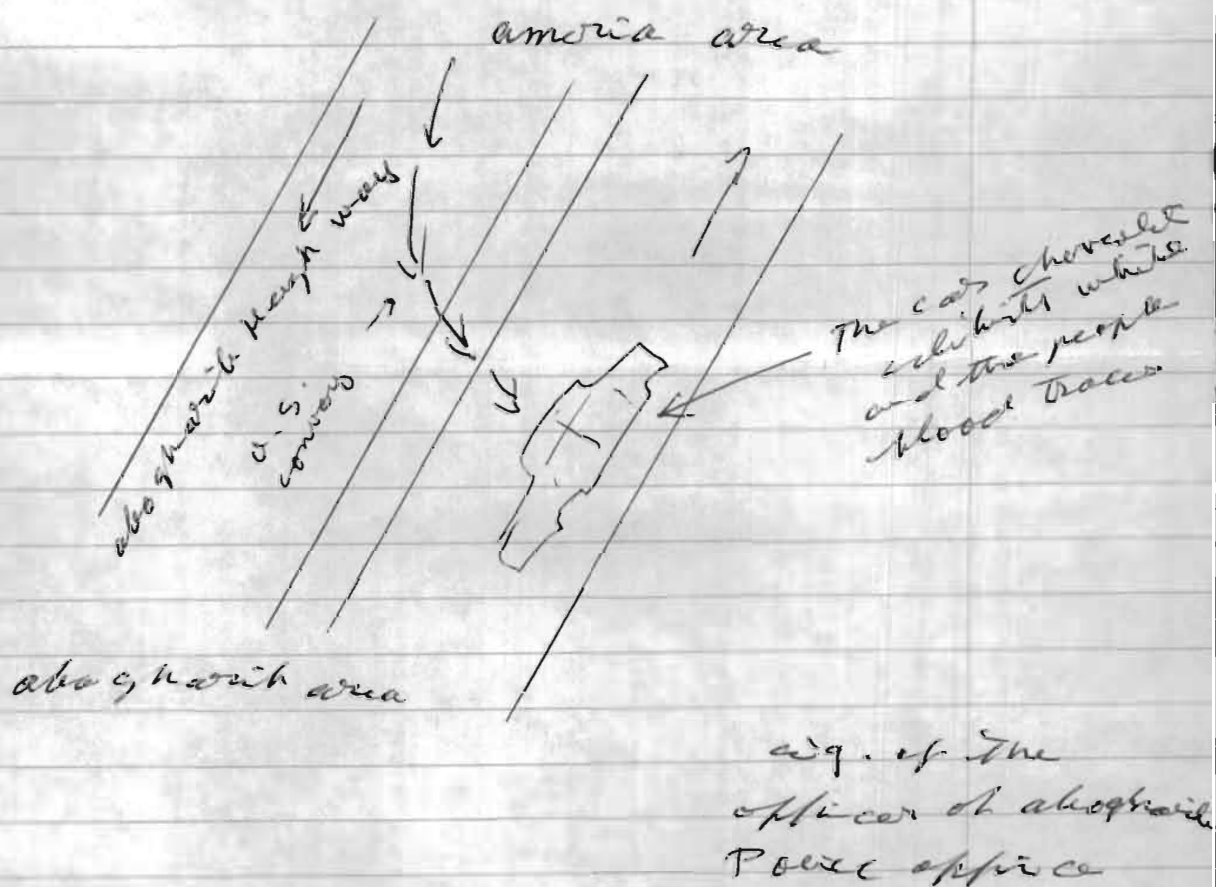 ameria area
aboghraib heigh way
U.S
convoys
The car chevrolet
celebrity white
and the people
blood traces
aboghraib area
sig. of the
officer of aboghraib
Police office